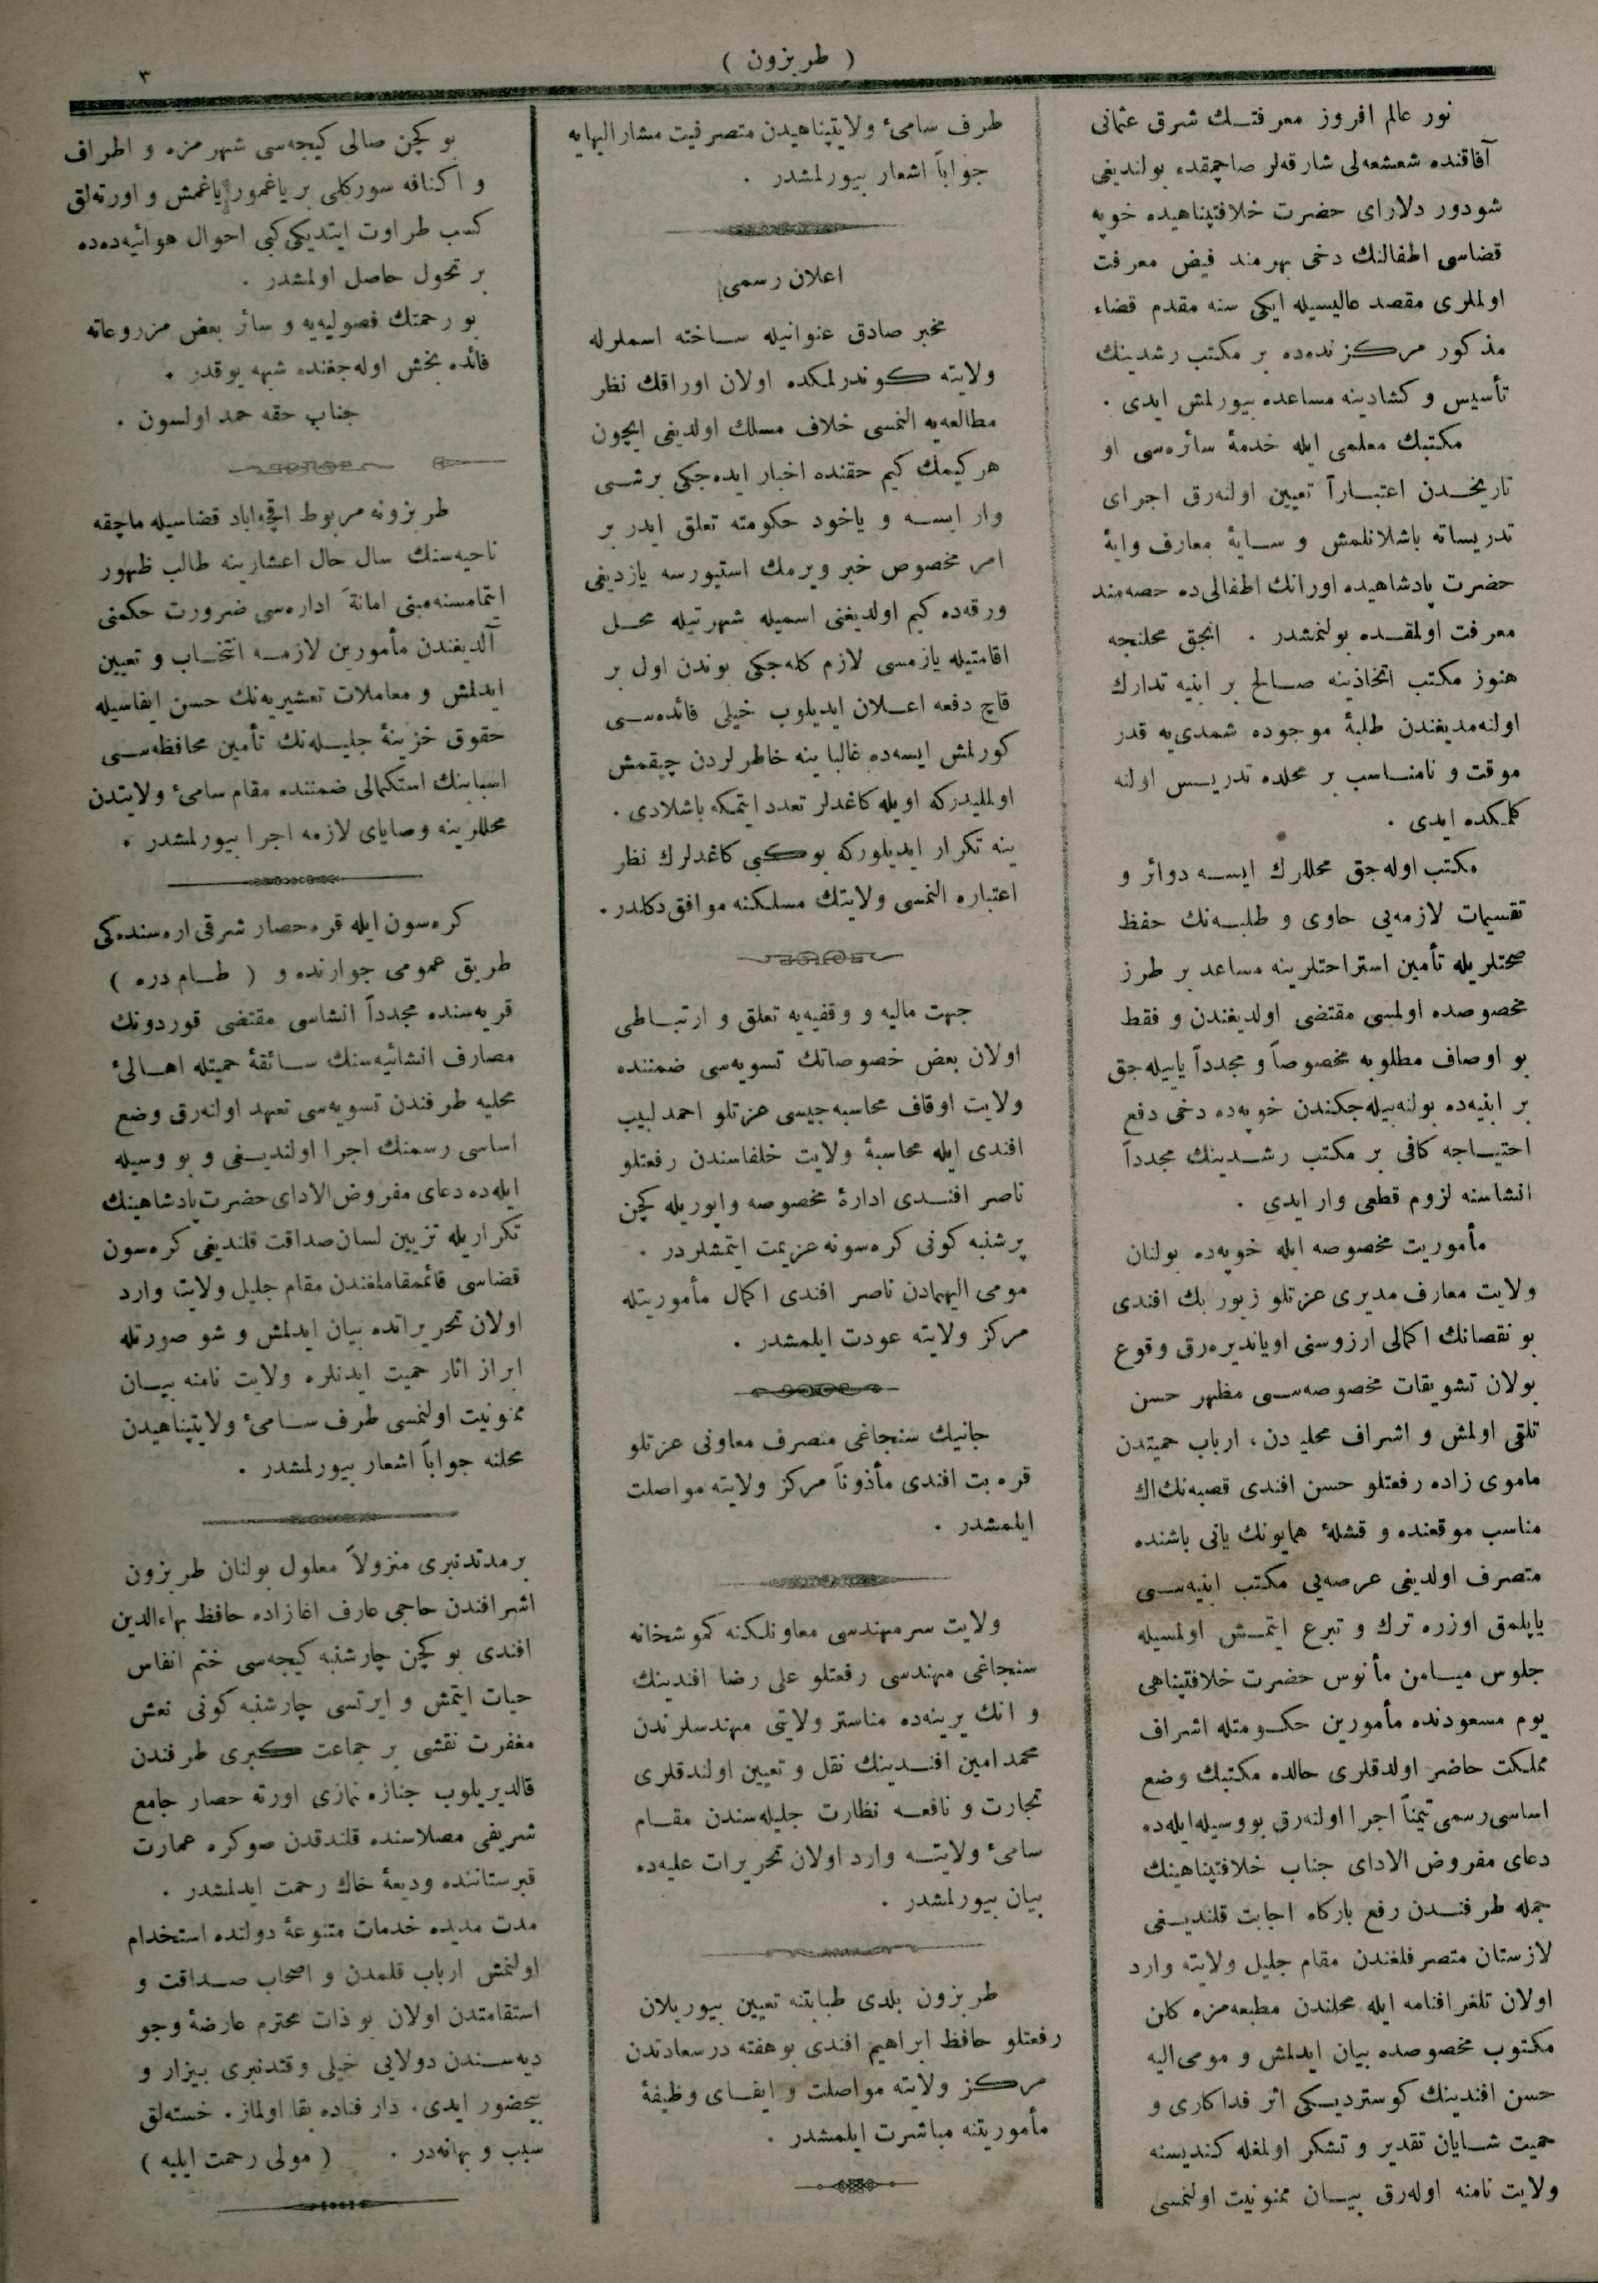 ( طربزون )
٣
نور عالم افروز معرفتـك شرق عثمانی
آفاقنده شعشعه‌لی شارقه‌لر صاچمقده بولندیغی
شودور دلارای حضرت خلافتپناهیده خوپه
قضاسی اطفالنك دخی بهرمند فیض معرفت
اولملری مقصد عالیسیله ایکی سنه مقدم قضاء
مذکور مرکزنده‌ده بر مکتب رشدینك
تأسیس و کشادینه مساعده بیورلمش ایدی .
مکتبك معلمی ایله خدمهٔ سائره‌سی او
تاریخـدن اعتبـاراً تعیین اولنه‌رق اجرای
تدریساته باشلانلمش و سـایهٔ معارف وایهٔ
حضرت پادشاهیده اورانك اطفالی‌ده حصه‌مند
معرفت اولمقـده بولنمشدر . انجق محلنجه
هنوز مکتب اتخاذینه صـالح بر ابنیه تدارك
اولنه‌مدیغندن طلبهٔ موجوده شمدی‌یه قدر
موقت و نامنـاسب بر محلده تدریـس اولنه
کلمکده ایدی .
مکتب اوله‌جق محللرك ایسـه دوائر و
تقسیمات لازمه‌یی حاوی و طلبـه‌نك حفظ
صحتلریله تأمین استراحتلرینه مساعد بر طرز
مخصوصده اولمسی مقتضی اولدیغندن و فقط
بو اوصاف مطلوبه مخصوصاً و مجدداً یاپیله‌جق
بر ابنیه‌ده بولنه‌بیله‌جکندن خوپه‌ده دخی دفع
احتیـاجه کافی بر مکتب رشـدینك مجدداً
انشاسنه لزوم قطعی وار ایدی .
مأموریت مخصوصه ایله خوپه‌ده بولنان
ولایت معارف مدیری عزتلو زیور بك افندی
بو نقصانك اکمالی ارزوسنی اویاندیره‌رق وقوع
بولان تشویقات مخصوصه‌سـی مظهر حسن
تلقی اولمش و اشراف محلیه دن، ارباب حمیتدن
ماموی زاده رفعتلو حسن افندی قصبه‌نك‌اك
مناسب موقعنده و قشلهٔ همایونك یانی باشنده
متصرف اولدیغی عرصه‌یی مکتب ابنیه‌سـی
یاپلمق اوزره ترك و تبرع ایتمـش اولمسیله
جلوس میـامن مأنوس حضرت خلافتپناهی
یوم مسعودنده مأمورین حکـومتله اشراف
مملکت حاضر اولدقلری حالده مکتبك وضع
اساسی رسمی تیمناً اجرا اولنه‌رق بووسیله‌ایله‌ده
دعای مفروض الادای جناب خلافتپناهینك
جمله طرفنـدن رفع بارکاه اجابت قلندیـغی
لازستان متصرفلغندن مقام جلیل ولایته وارد
اولان تلغرافنامه ایله محلندن مطبعه‌مزه کلن
مکتوب مخصوصده بیان ایدلمش و مومی‌الیه
حسن افندینك کوستردیـکی اثر فداکاری و
حمیت شـایان تقدیر و تشکر اولمغله کندیسنه
ولایت نامنه اوله‌رق بیـان ممنونیت اولنمسی
طرف سامیٔ ولایتپناهیدن متصرفیت مشارالیهایه
جواباً اشعار بیورلمشدر .
اعلان رسمی
مخبر صادق عنوانیله سـاخته اسملرله
ولایته کوندرلمکده اولان اوراقك نظر
مطالعه‌یه النمسی خلاف مسلك اولدیغی ایچون
هر کیمك کیم حقنده اخبار ایده‌جکی برشـی
وار ایسـه و یاخود حکومته تعلق ایدر بر
امر مخصوص خبر ویرمك استیورسه یازدیغی
ورقه‌ده کیم اولدیغنی اسمیله شهرتیله محـل
اقامتیله یازمسی لازم کله‌جکی بوندن اول بر
قاچ دفعه اعـلان ایدیلوب خیلی فائده‌سـی
کورلمش ایسه‌ده غالبا ینه خاطرلردن چیقمش
اولملیدرکه اویله کاغدلر تعدد ایتمکه باشلادی .
ینه تکرار ایدیلورکه بو کبی کاغدلرك نظر
اعتباره النمسی ولایتك مسلکنه موافق دکلدر .
جهت مالیه و وقفیه‌یه تعلق و ارتبـاطی
اولان بعض خصوصاتك تسویه‌سی ضمننده
ولایت اوقاف محاسبه‌جیسی عزتلو احمد لبیب
افندی ایله محاسبهٔ ولایت خلفاسندن رفعتلو
ناصر افنـدی ادارهٔ مخصوصه واپوریله کچن
پرشنبه کونی کره‌سونه عزیمت ایتمشلردر .
مومی الیهمادن ناصر افندی اکمال مأموریتله
مرکز ولایته عودت ایلمشدر .
جانیك سنجاغی متصرف معاونی عزتلو
قره بت افندی مأذوناً مرکز ولایته مواصلت
ایلمشدر .
ولایت سرمهندسی معاونلکنه کموشخانه
سنجاغی مهندسی رفعتلو علی رضا افندینك
و انك یرینه‌ده مناستر ولایتی مهندسلرندن
محمد امین افنـدینك نقل و تعیین اولندقلری
تجارت و نافعـه نظارت جلیله‌سندن مقـام
سامیٔ ولایتـه وارد اولان تحریرات علیه‌ده
بیان بیورلمشدر .
طربزون بلدی طبابتنه تعیین بیوریلان
رفعتلو حافظ ابراهیم افندی بوهفته درسعادتدن
مرکز ولایته مواصلت و ایفـای وظیفهٔ
مأموریتنه مباشرت ایلمشدر .
بو کچن صالی کیجه‌سی شهرمزه و اطراف
و اکنافه سورکلی بر یاغمور یاغمش و اورته‌لق
کسب طراوت ایتدیکی کبی احوال هوائیه‌ده‌ده
بر تحول حاصل اولمشدر .
بو رحمتك فصولیه‌یه و سائر بعض مزروعاته
فائده بخش اوله‌جغنده شبهه یوقدر .
جناب حقه حمد اولسون .
طربزونه مربوط اقچه‌اباد قضاسیله ماچقه
ناحیه‌سنك سال حال اعشارینه طالب ظهور
ایتمامسنه‌مبنی امانةً اداره‌سی ضرورت حکمنی
آلدیغندن مأمورین لازمـه انتخـاب و تعیین
ایدلمش و معاملات تعشیریه‌نك حسن ایفاسیله
حقوق خزینهٔ جلیـله‌نك تأمین محافظه‌سـی
اسبابنك استکمالی ضمننده مقام سامیٔ ولایتدن
محللرینه وصایای لازمه اجرا بیورلمشدر .
کره‌سون ایله قره‌حصار شرقی اره‌سنده‌کی
طریق عمومی جوارنده و ( طـام دره )
قریه‌سنده مجدداً انشاسی مقتضی قوردونك
مصارف انشائیه‌سنك سـائقهٔ حمیتله اهـالیٔ
محلیه طرفندن تسویه‌سی تعهد اولنه‌رق وضع
اساسی رسمنك اجرا اولندیـغی و بو وسیله
ایله‌ده دعای مفروض الادای حضرت پادشاهینك
تکراریله تزیین لسان صداقت قلندیغی کره‌سون
قضاسی قائممقاملغندن مقام جلیل ولایته وارد
اولان تحریراتده بیان ایدلمش و شو صورتله
ابراز اثار حمیت ایدنلره ولایت نامنه بیـان
ممنونیت اولنمسی طرف سـامیٔ ولایتپناهیدن
محلنه جواباً اشعار بیورلمشدر .
بر مدتدنبری منزولاً معلول بولنان طربزون
اشرافندن حاجی عارف اغازاده حافظ بهاءالدین
افندی بو کچن چارشنبه کیجه‌سی ختم انفاس
حیات ایتمش و ایرتسی چارشنبه کونی نعش
مغفرت نقشی بر جماعت کبری طرفندن
قالدیریلوب جنازه نمازی اورته حصار جامع
شریفی مصلاسنده قلندقدن صوکره عمارت
قبرستاننده ودیعهٔ خاك رحمت ایدلمشدر .
مدت مدیده خدمات متنوعهٔ دولتده استخدام
اولنمش ارباب قلمدن و اصحاب صـداقت و
استقامتدن اولان بو ذات محترم عارضهٔ وجو
دیه‌سـندن دولایی خیلی وقتدنبری بیزار و
بیحضور ایدی. دار فناده بقا اولماز. خسته‌لق
سبب و بهانه‌در . ( مولی رحمت ایلیه )